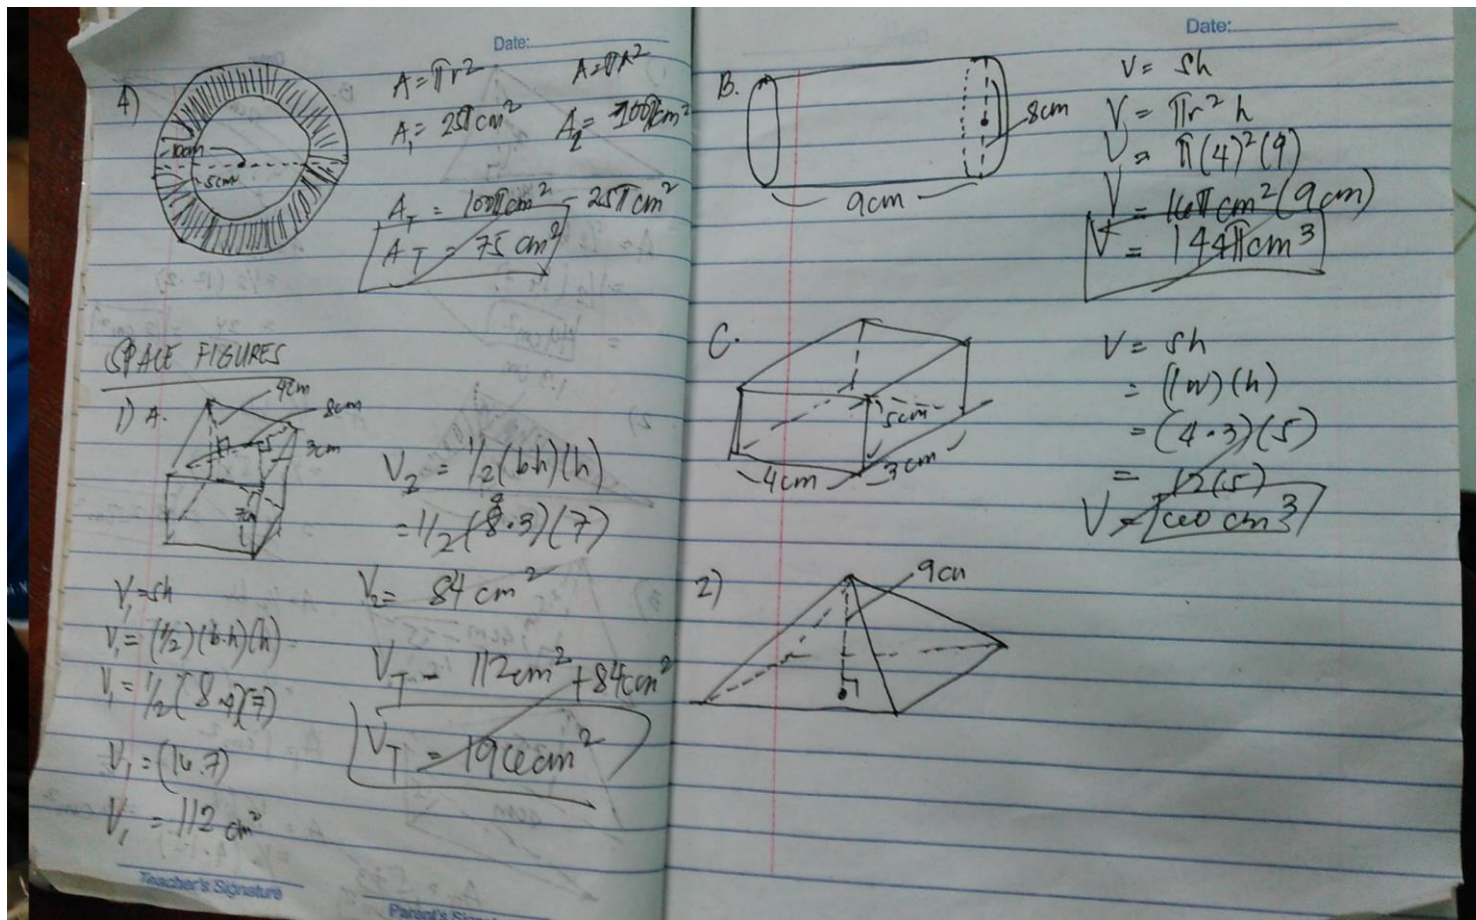 Date:
4)
10cm
5cm
A = πr²
A = πR²
A₁ = 25πcm²
A₂ = 100πcm²
A_T = 100πcm² - 25πcm²
A_T = 75 cm²
SPACE FIGURES
1) A.
4cm
8cm
3cm
V₁ = sh
V₁ = (1/2)(b·h)(h)
V₁ = 1/2(8·4)(7)
V₁ = (16·7)
V₁ = 112 cm²
V₂ = 1/2(b·h)(h)
= 1/2(8·3)(7)
V₂ = 84 cm²
V_T = 112cm² + 84cm²
V_T = 196cm²
Teacher's Signature
Date:
B.
8cm
9cm
V = sh
V = πr²h
V = π(4)²(9)
V = 16πcm²(9cm)
V = 144πcm³
C.
5cm
4cm
3cm
V = sh
= (lw)(h)
= (4·3)(5)
= 12(5)
V = 60 cm³
2)
9cm